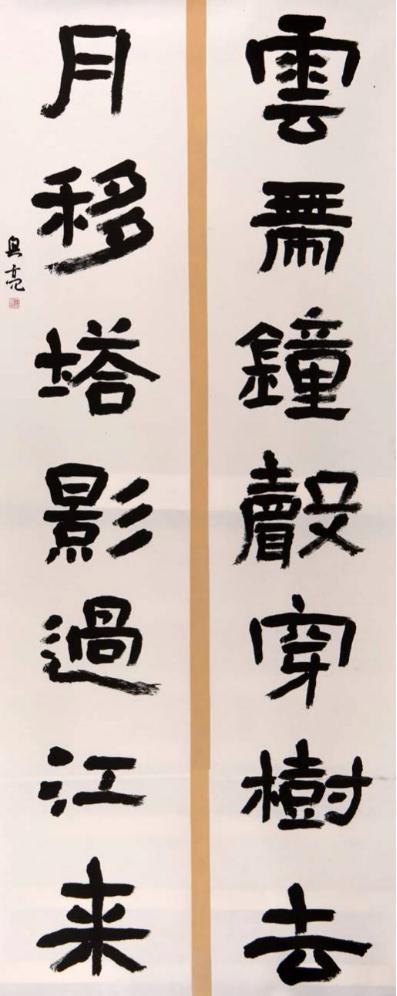 雲帶鐘聲穿樹去
月移塔影過江来
亮